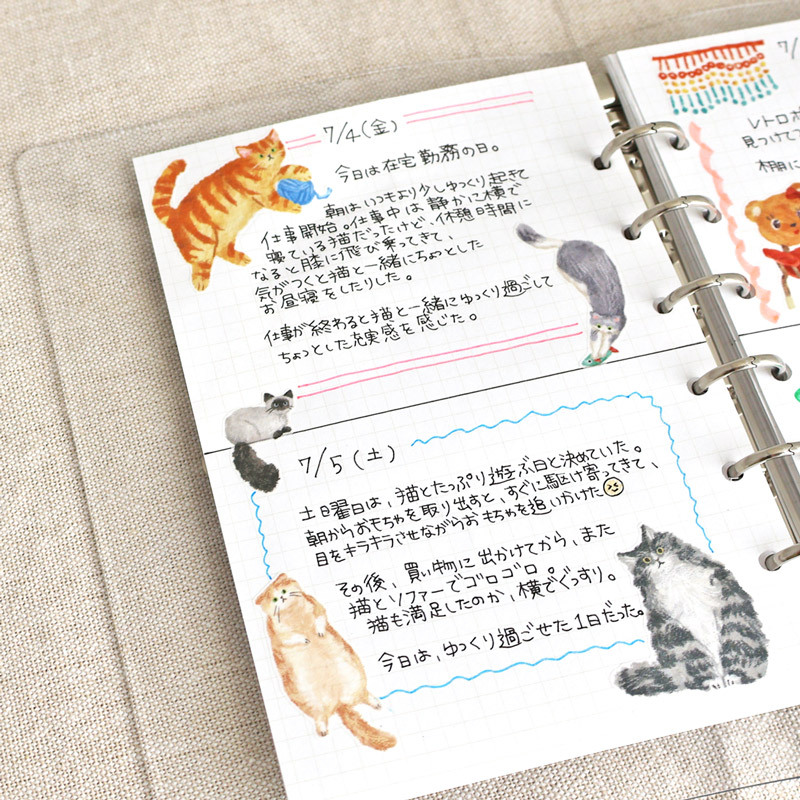 7/4(金)
今日は在宅勤務の日。
朝はいつもより少しゆっくり起きて
仕事開始。仕事中は静かに横で
寝ている猫だったけど、休憩時間に
なると膝に飛び乗ってきて、
気がつくと猫と一緒にちょっとした
お昼寝をしたりした。
仕事が終わると猫と一緒にゆっくり過ごして
ちょっとした充実感を感じた。
7/5(土)
土曜日は、猫とたっぷり遊ぶ日と決めていた。
朝からおもちゃを取り出すと、すぐに駆け寄ってきて、
目をキラキラさせながらおもちゃを追いかけた
その後、買い物に出かけてから、また
猫とソファーでゴロゴロ。
猫も満足したのか、横でぐっすり。
今日は、ゆっくり過ごせた1日だった。
7/
レトロポ
見つけて
棚に